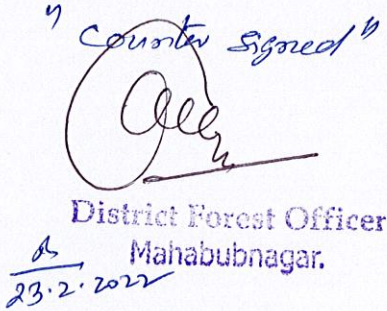 " Counter Signed "
District Forest Officer
Mahabubnagar.
23.2.2022